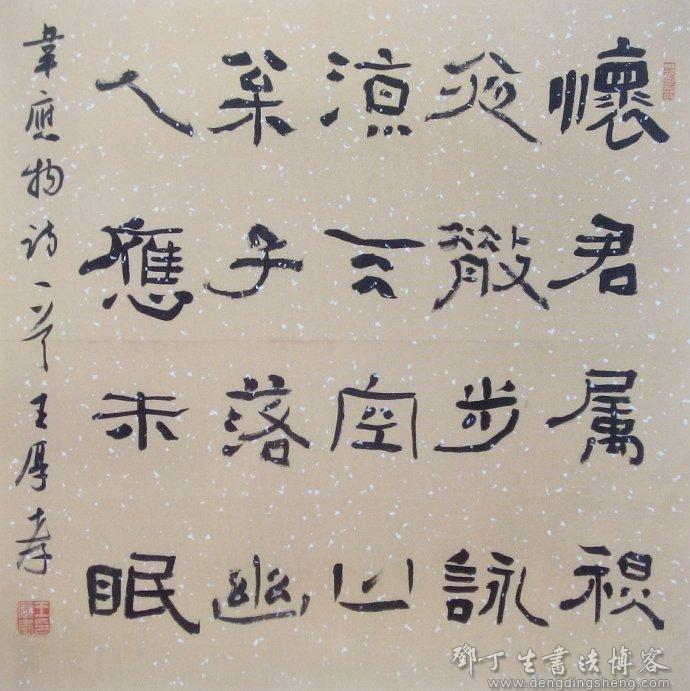 懷君属秋
夜散步詠
涼天空山
枀子落幽
人應未眠
韋應物詩一首 王厚孝
鄧丁生書法博客
www.dengdingsheng.com